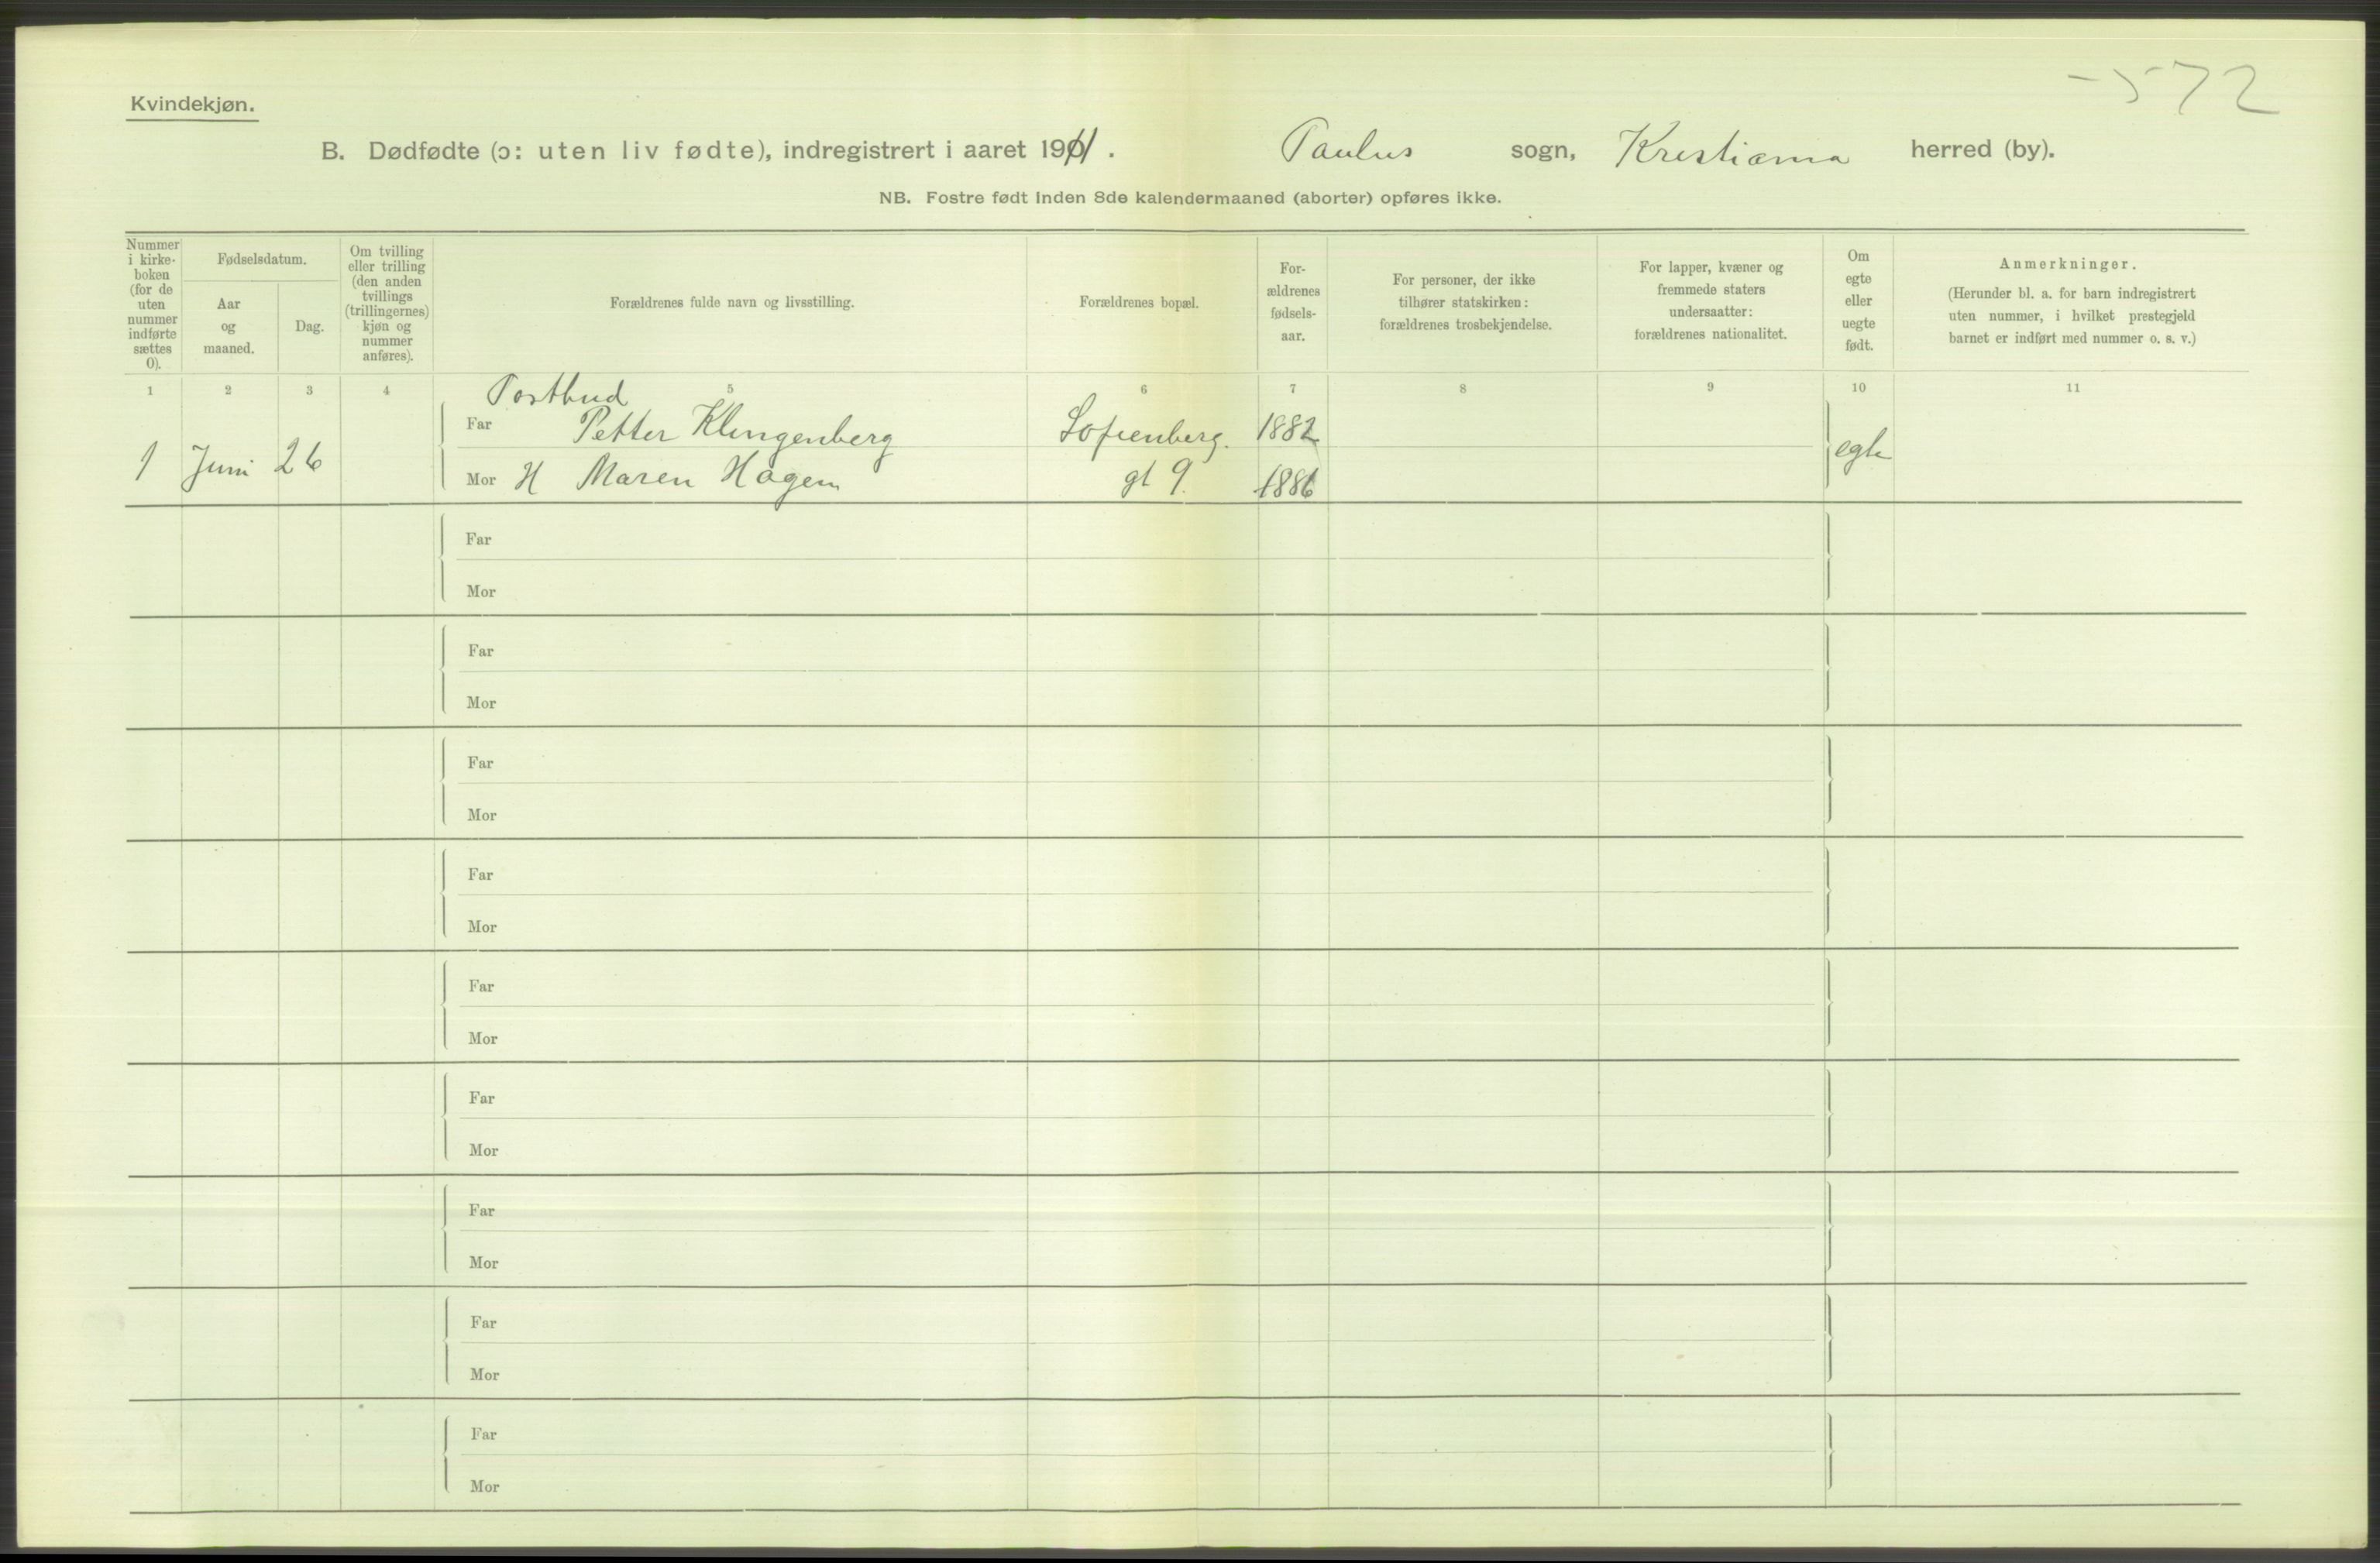 -572
Kvindekjøn.
B. Dødfødte (ɔ: uten liv fødte), indregistrert i aaret 1911. Paulus sogn, Kristiania herred (by).
NB. Fostre født inden 8de kalendermaaned (aborter) opføres ikke.
Nummer
i kirke-
boken
(for de
uten
nummer
indførte
sættes
0).
Fødselsdatum.
Aar
og
maaned.
Dag.
Om tvilling
eller trilling
(den anden
tvillings
(trillingernes)
kjøn og
nummer
anføres).
Forældrenes fulde navn og livsstilling.
Forældrenes bopæl.
For-
ældrenes
fødsels-
aar.
For personer, der ikke
tilhører statskirken:
forældrenes trosbekjendelse.
For lapper, kvæner og
fremmede staters
undersaatter:
forældrenes nationalitet.
Om
egte
eller
uegte
født.
Anmerkninger.
(Herunder bl. a. for barn indregistrert
uten nummer, i hvilket prestegjeld
barnet er indført med nummer o. s. v.)
1 2 3 4 5 6 7 8 9 10 11
Postbud
Far Petter Klingenberg Sofienberg. 1882
1 Juni 26 egte
Mor H Maren Hagen gt 9. 1886
Far
Mor
Far
Mor
Far
Mor
Far
Mor
Far
Mor
Far
Mor
Far
Mor
Far
Mor
Far
Mor